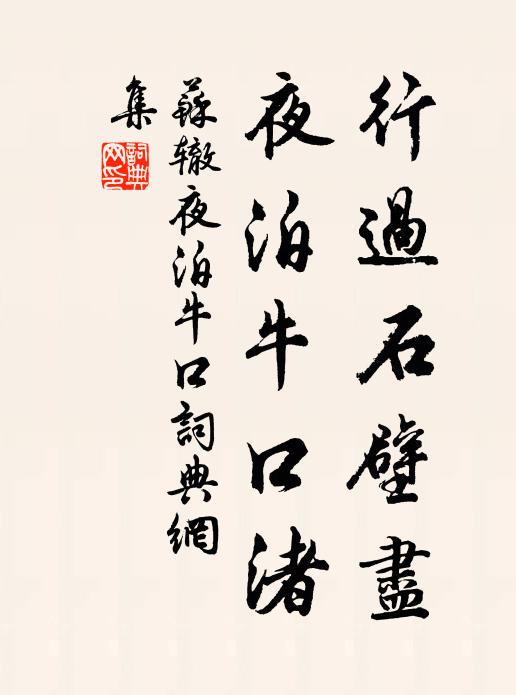 行過石壁盡
夜泊牛口渚
蘇辙夜泊牛口詞典網
集
詞典
网印